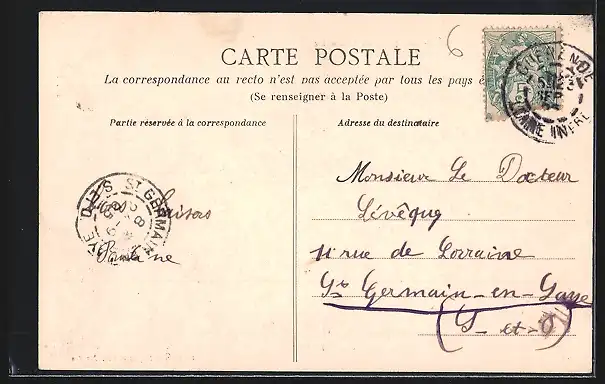 6
CARTE POSTALE
La correspondance au recto n'est pas acceptée par tous les pays é
(Se renseigner à la Poste)
Partie réservée à la correspondance
Adresse du destinataire
Monsieur Le Docteur
Lévêque
11 rue de Lorraine
St Germain-en-Laye
(S-et-O)
Baisers
ST GERMAIN